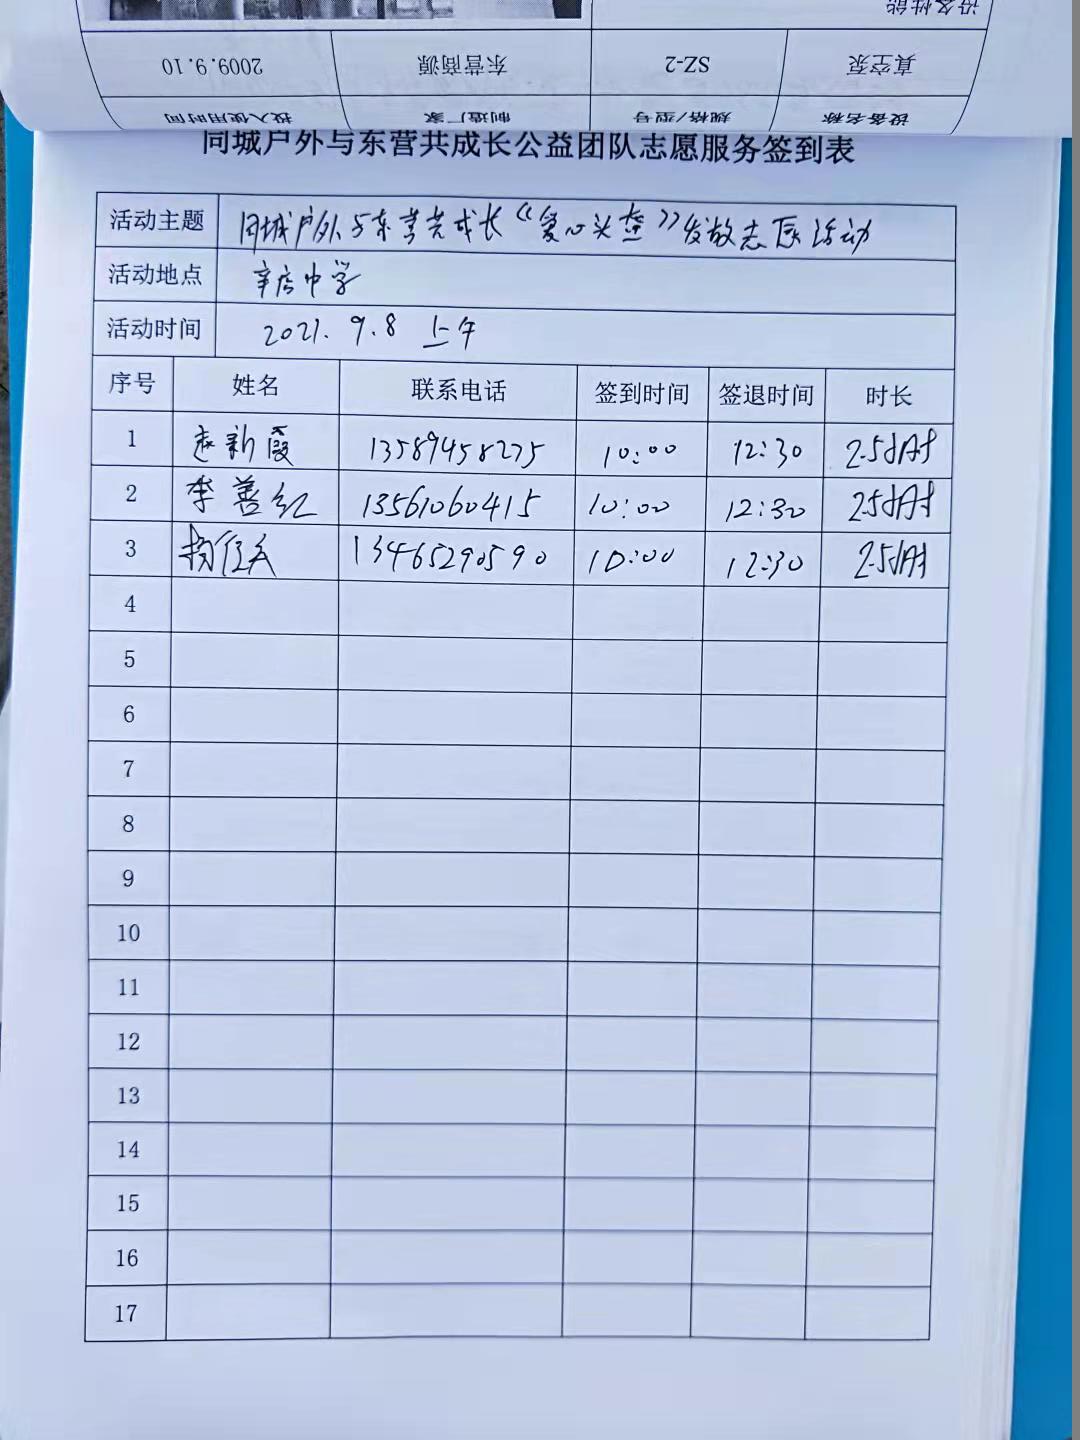 设备性能
真空泵 SZ-2 东营商源 2009.9.10
设备名称 规格/型号 制造厂家 投入使用时间
同城户外与东营共成长公益团队志愿服务签到表
活动主题 同城户外与东营共成长《爱心头盔》发放志愿活动
活动地点 辛店中学
活动时间 2021.9.8 上午
序号 姓名 联系电话 签到时间 签退时间 时长
1 赵新霞 13589458275 10:00 12:30 2.5小时
2 李善红 13561060415 10:00 12:30 2.5小时
3 13465290590 10:00 12:30 2.5小时
4
5
6
7
8
9
10
11
12
13
14
15
16
17